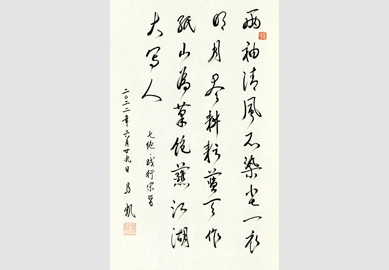 两袖清风不染尘一衣
明月尽耕耘蓝天作
纸山为笔饱蘸江湖
大写人
七绝·践行宗旨
二〇二二年六月廿九日 马凯